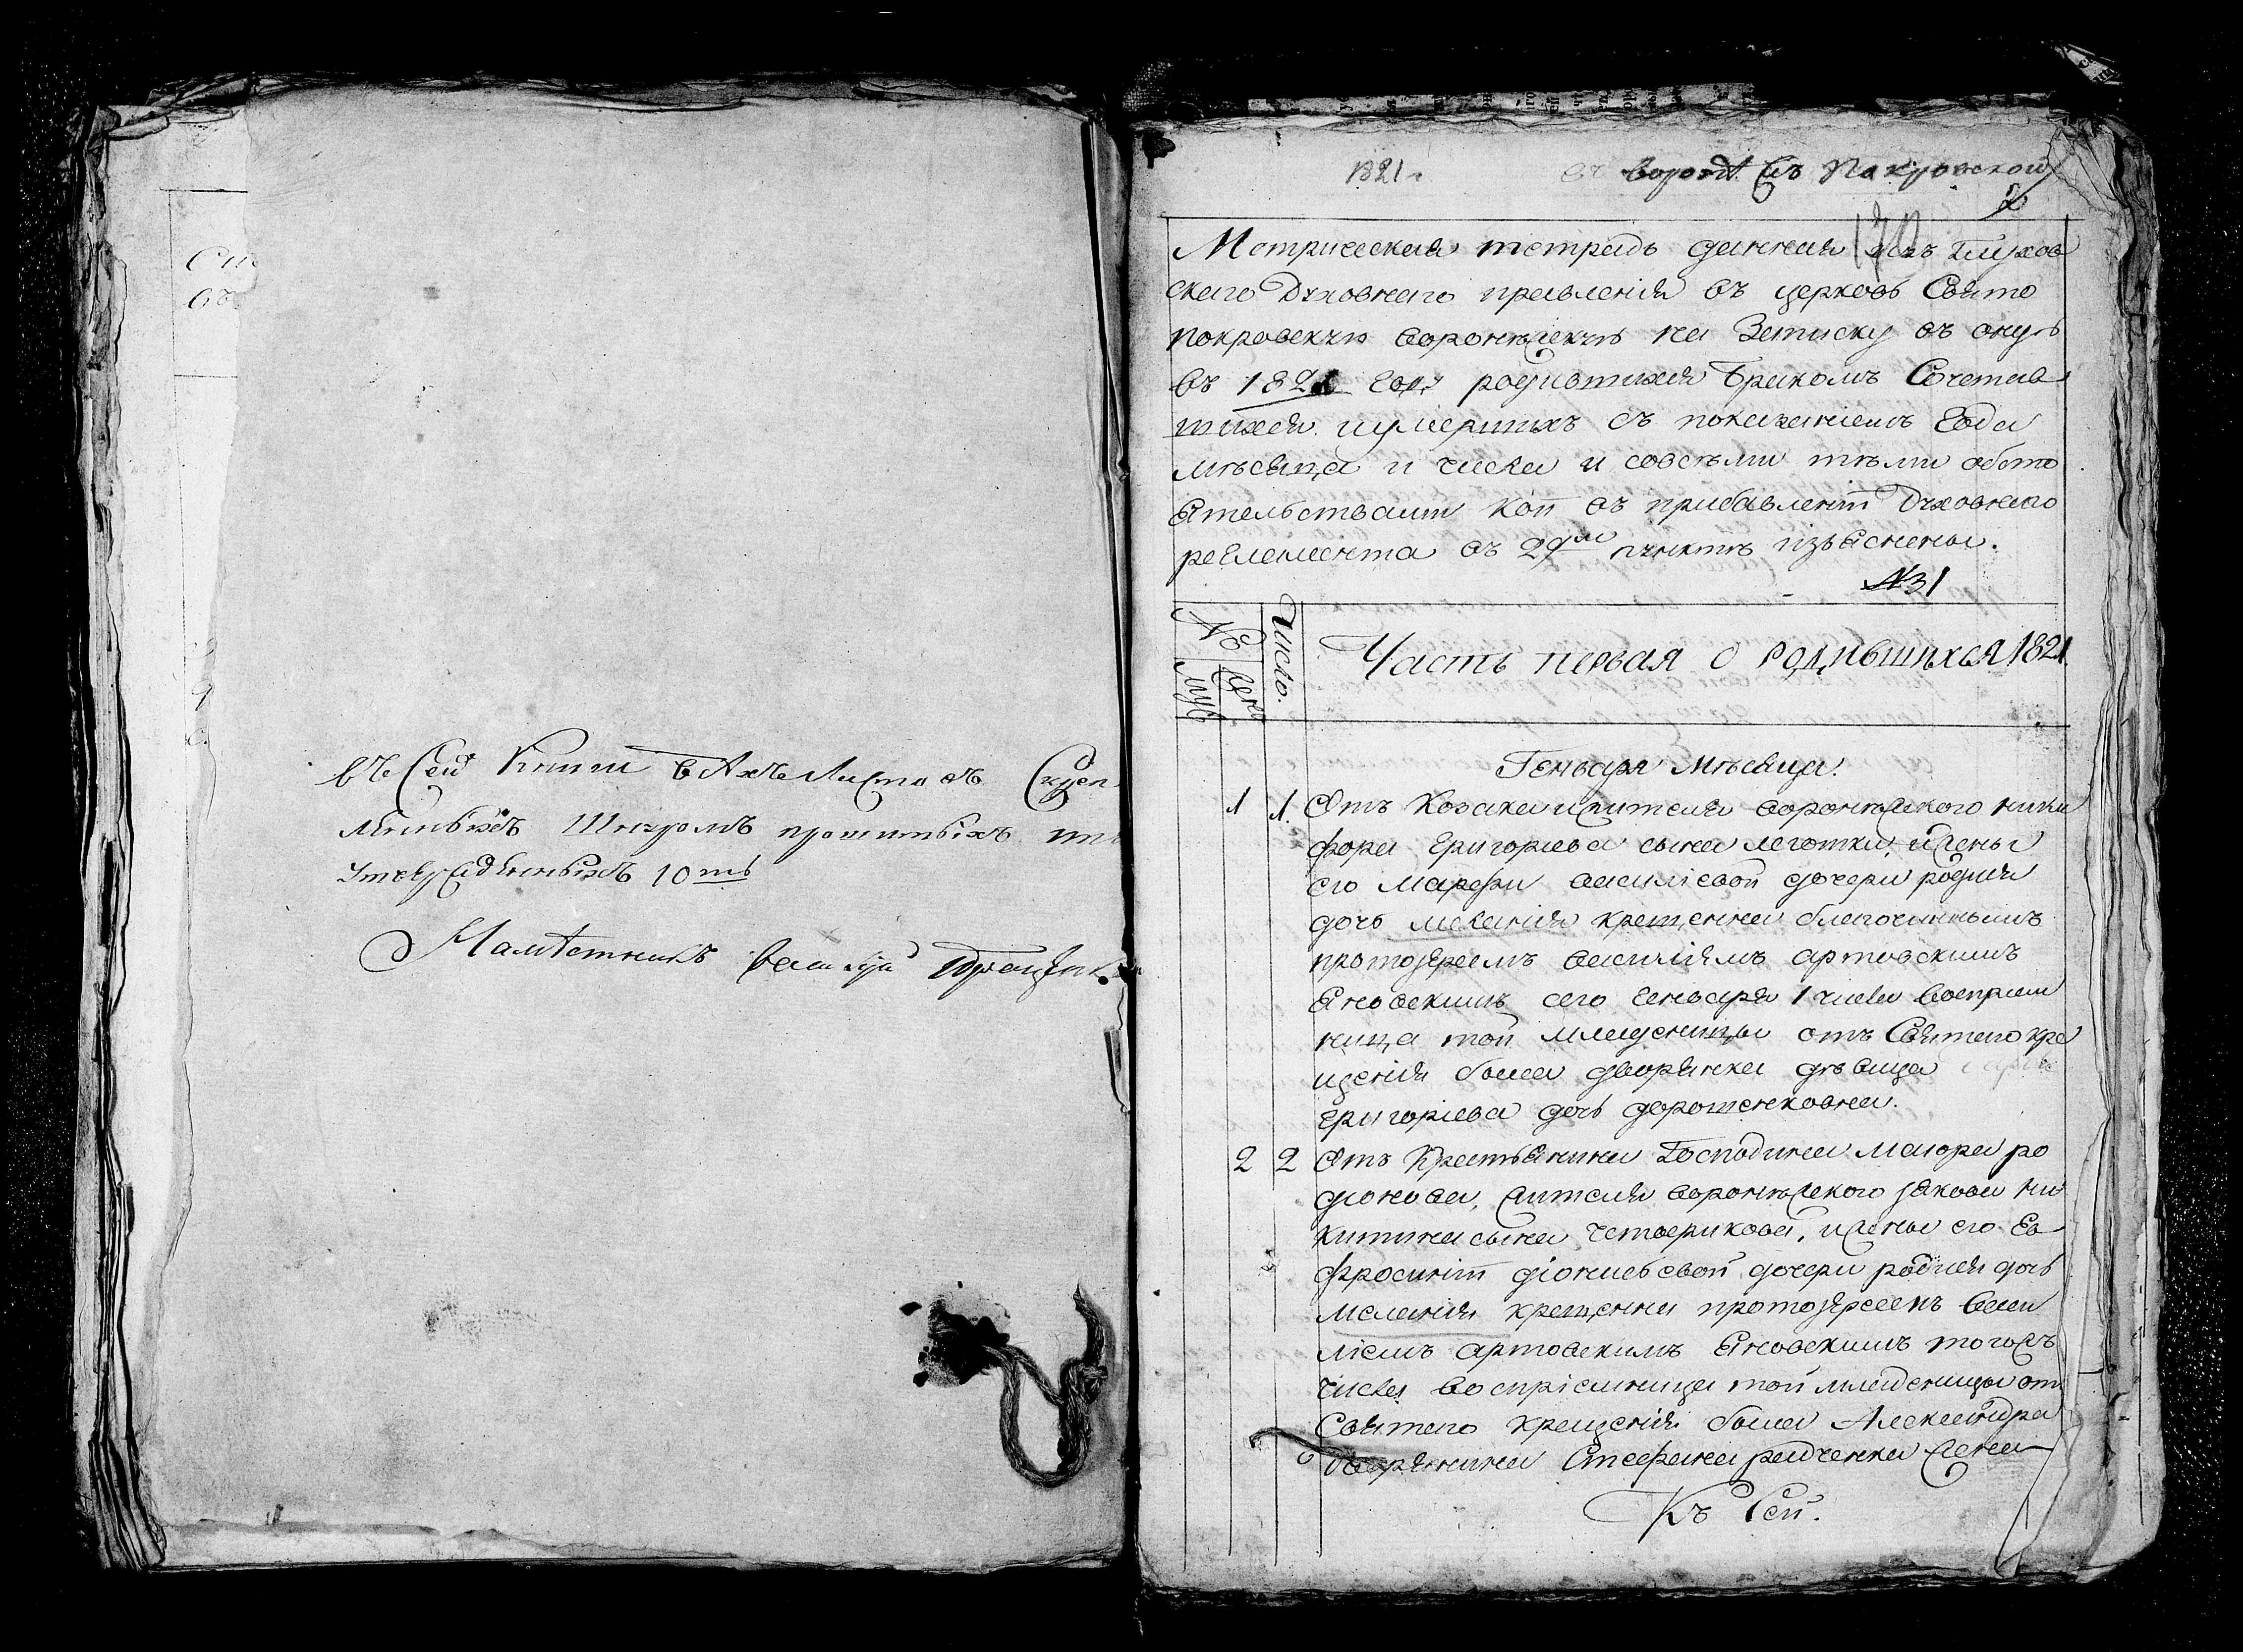 въ сей книги
Шнуромъ прошитыхъ
утвержденныхъ 10ть
Наместникъ
1821
Покровской
2
Метрическая тетрадь данная изъ Глухов
скаго Духовнаго правленія въ церковь Свято
покровскую воронѣжскую на Записку въ оную
въ 1821 году родившихся бракомъ Сочетав
шихся иумершихъ съ показаніемъ года
мѣсяца и числа и совсѣми тѣми обсто
ятельствами кои въ прибавленіи Духовнаго
регламента въ 29м пунктѣ изъяснены.
№31
№
муж
жен
Число.
Часть первая о родившихся 1821
Генваря мѣсяца.
1 1. Отъ Козака ижителя воронѣжского ники
фора григориева сына леготки, ижены
его марфи василіевой дочери родися
дочь меланія крещенна благочиннымъ
протоіереемъ василіямъ артовскимъ
яновскимъ сего генваря 1 числа воспріем
ница той младеницы отъ Святаго кре
щенія была дворянка дѣвица
григоріева дочь дорошенковна.
2 2 Отъ Крестьянина Господина маиора ро
дионова, жителя воронѣжского якова ни
китина сына четверикова, ижены его Ев
фросиніи діонисьевой дочери родися дочь
меланія крещенна протоіереемъ васи
ліемъ артовскимъ яновскимъ тогожъ
числа воспріемница той младеницы отъ
Святаго крещенія была Александра
дворянина Стефана радченка жена
Къ Сей.